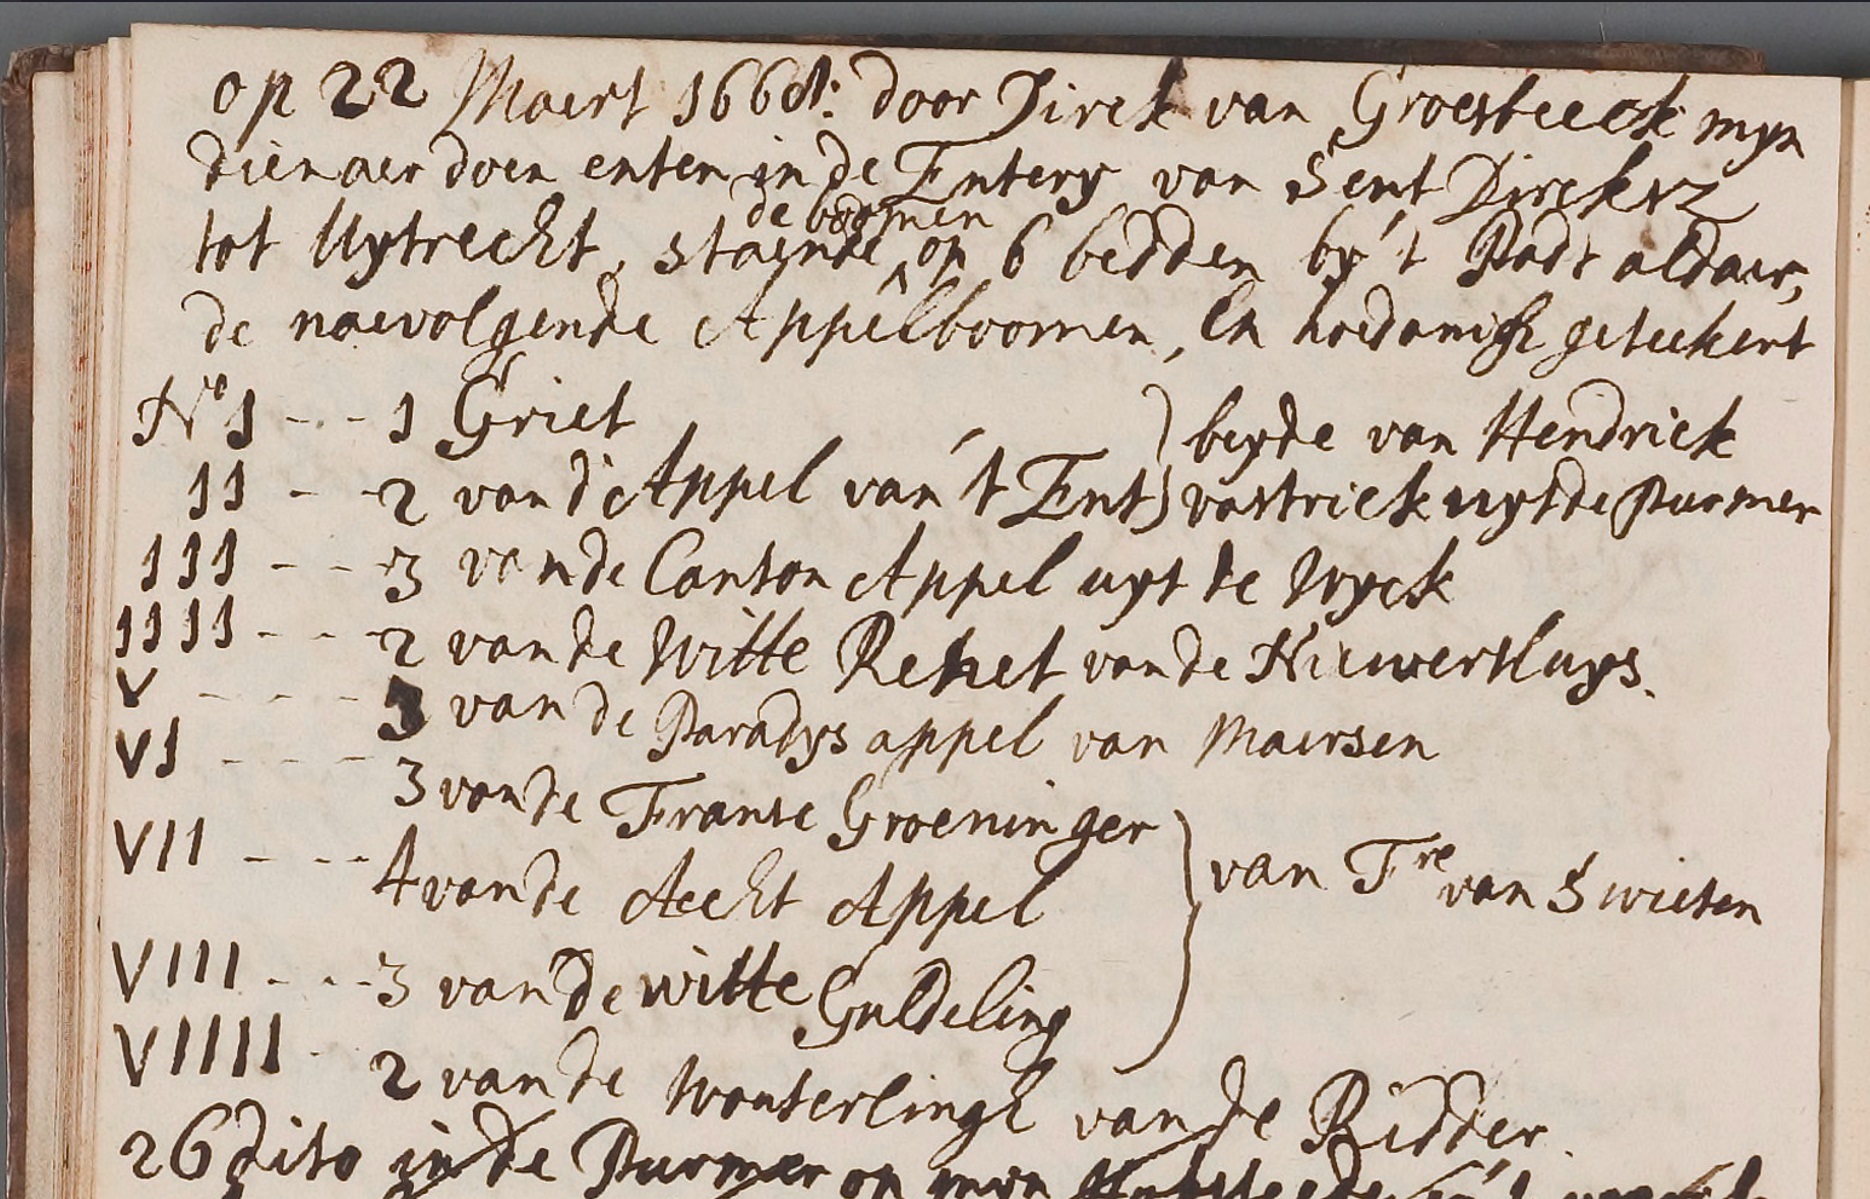 op 22 Maert 1668: door Dirck van Groesbeeck myn
dienaer doen enten in de Entery van Sent Dircksz
de boomen
tot Uytrecht, staende ^ op 6 bedden by 't Padt aldaer,
de naevolgende Appelboomen, En hoedanigh geteekent
No 1 --- 1 Griet } beyde van Hendrick
11 -- 2 van d'Appel van 't Ent } vastrick uyt de Purmer
111 --- 3 van de Canton Appel uyt de Wyck
1111 --- 2 van de Witte Renet van de Nieuwersluys.
V ---- 3 van de Paradys appel van Maersen
VI ---- 3 van de Franse Groeninger
VII ---- 4 van de Aecht Appel } van Fre van Swieten
VIII --- 3 van de witte Guldeling
VIIII -- 2 van de Wouterlingh van de Ridder.
26 dito in de Purmer op myn